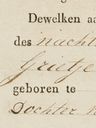 Dewelken aa
des nachts
Grietje
geboren te
Dochter